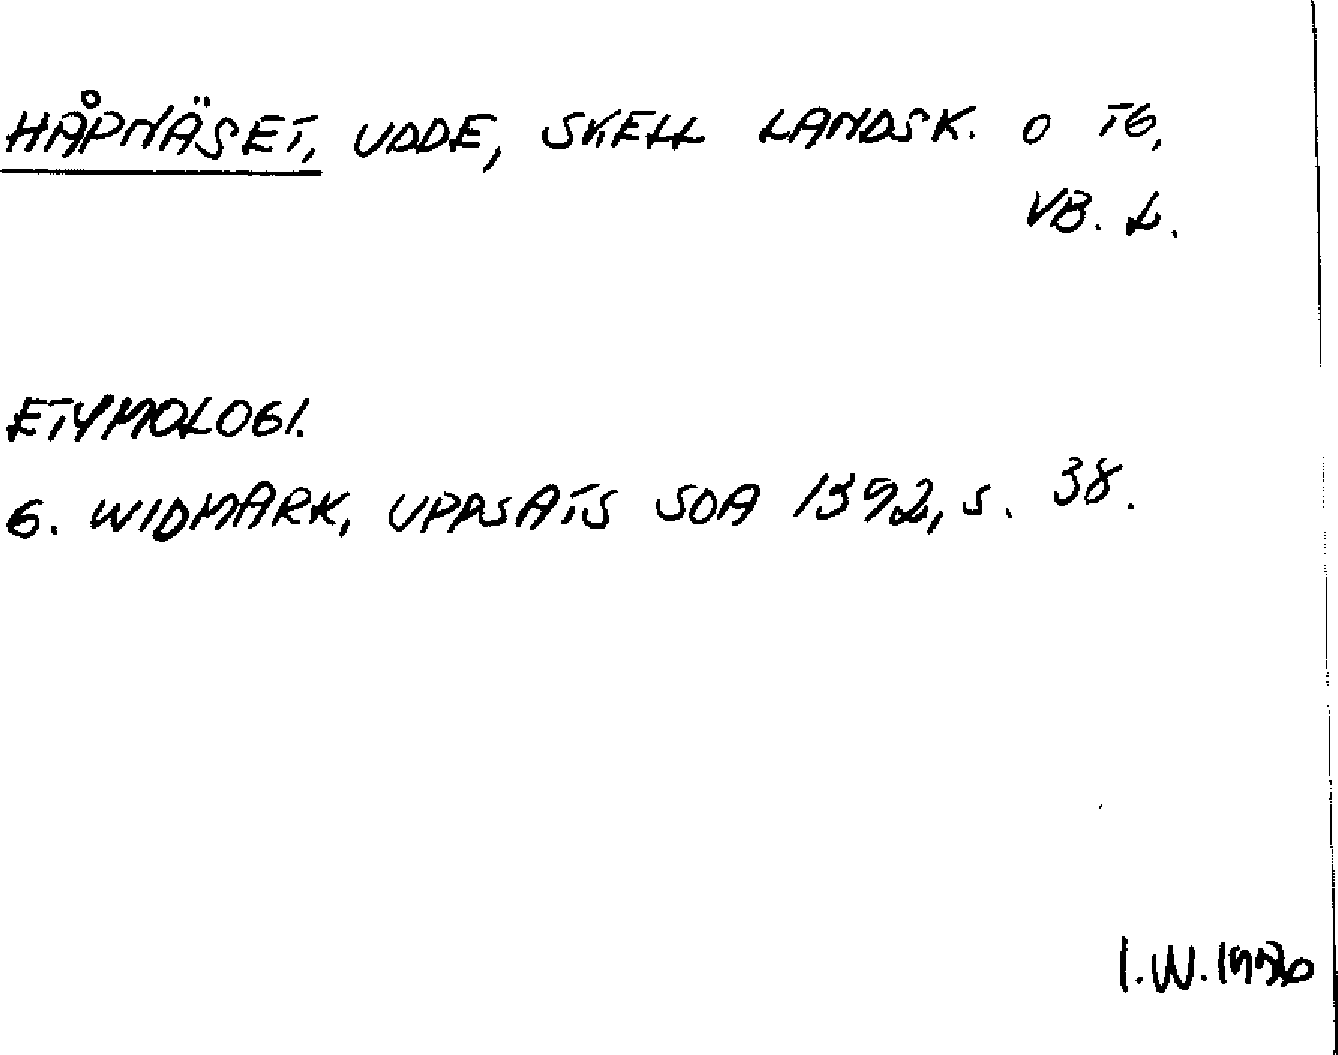 HÅPNÄSET, UDDE, SKELL LANDSK. O TG,
VB. L.
ETYMOLOGI.
G. WIDMARK, UPPSATS SOA 1392, S. 38.
I.W.